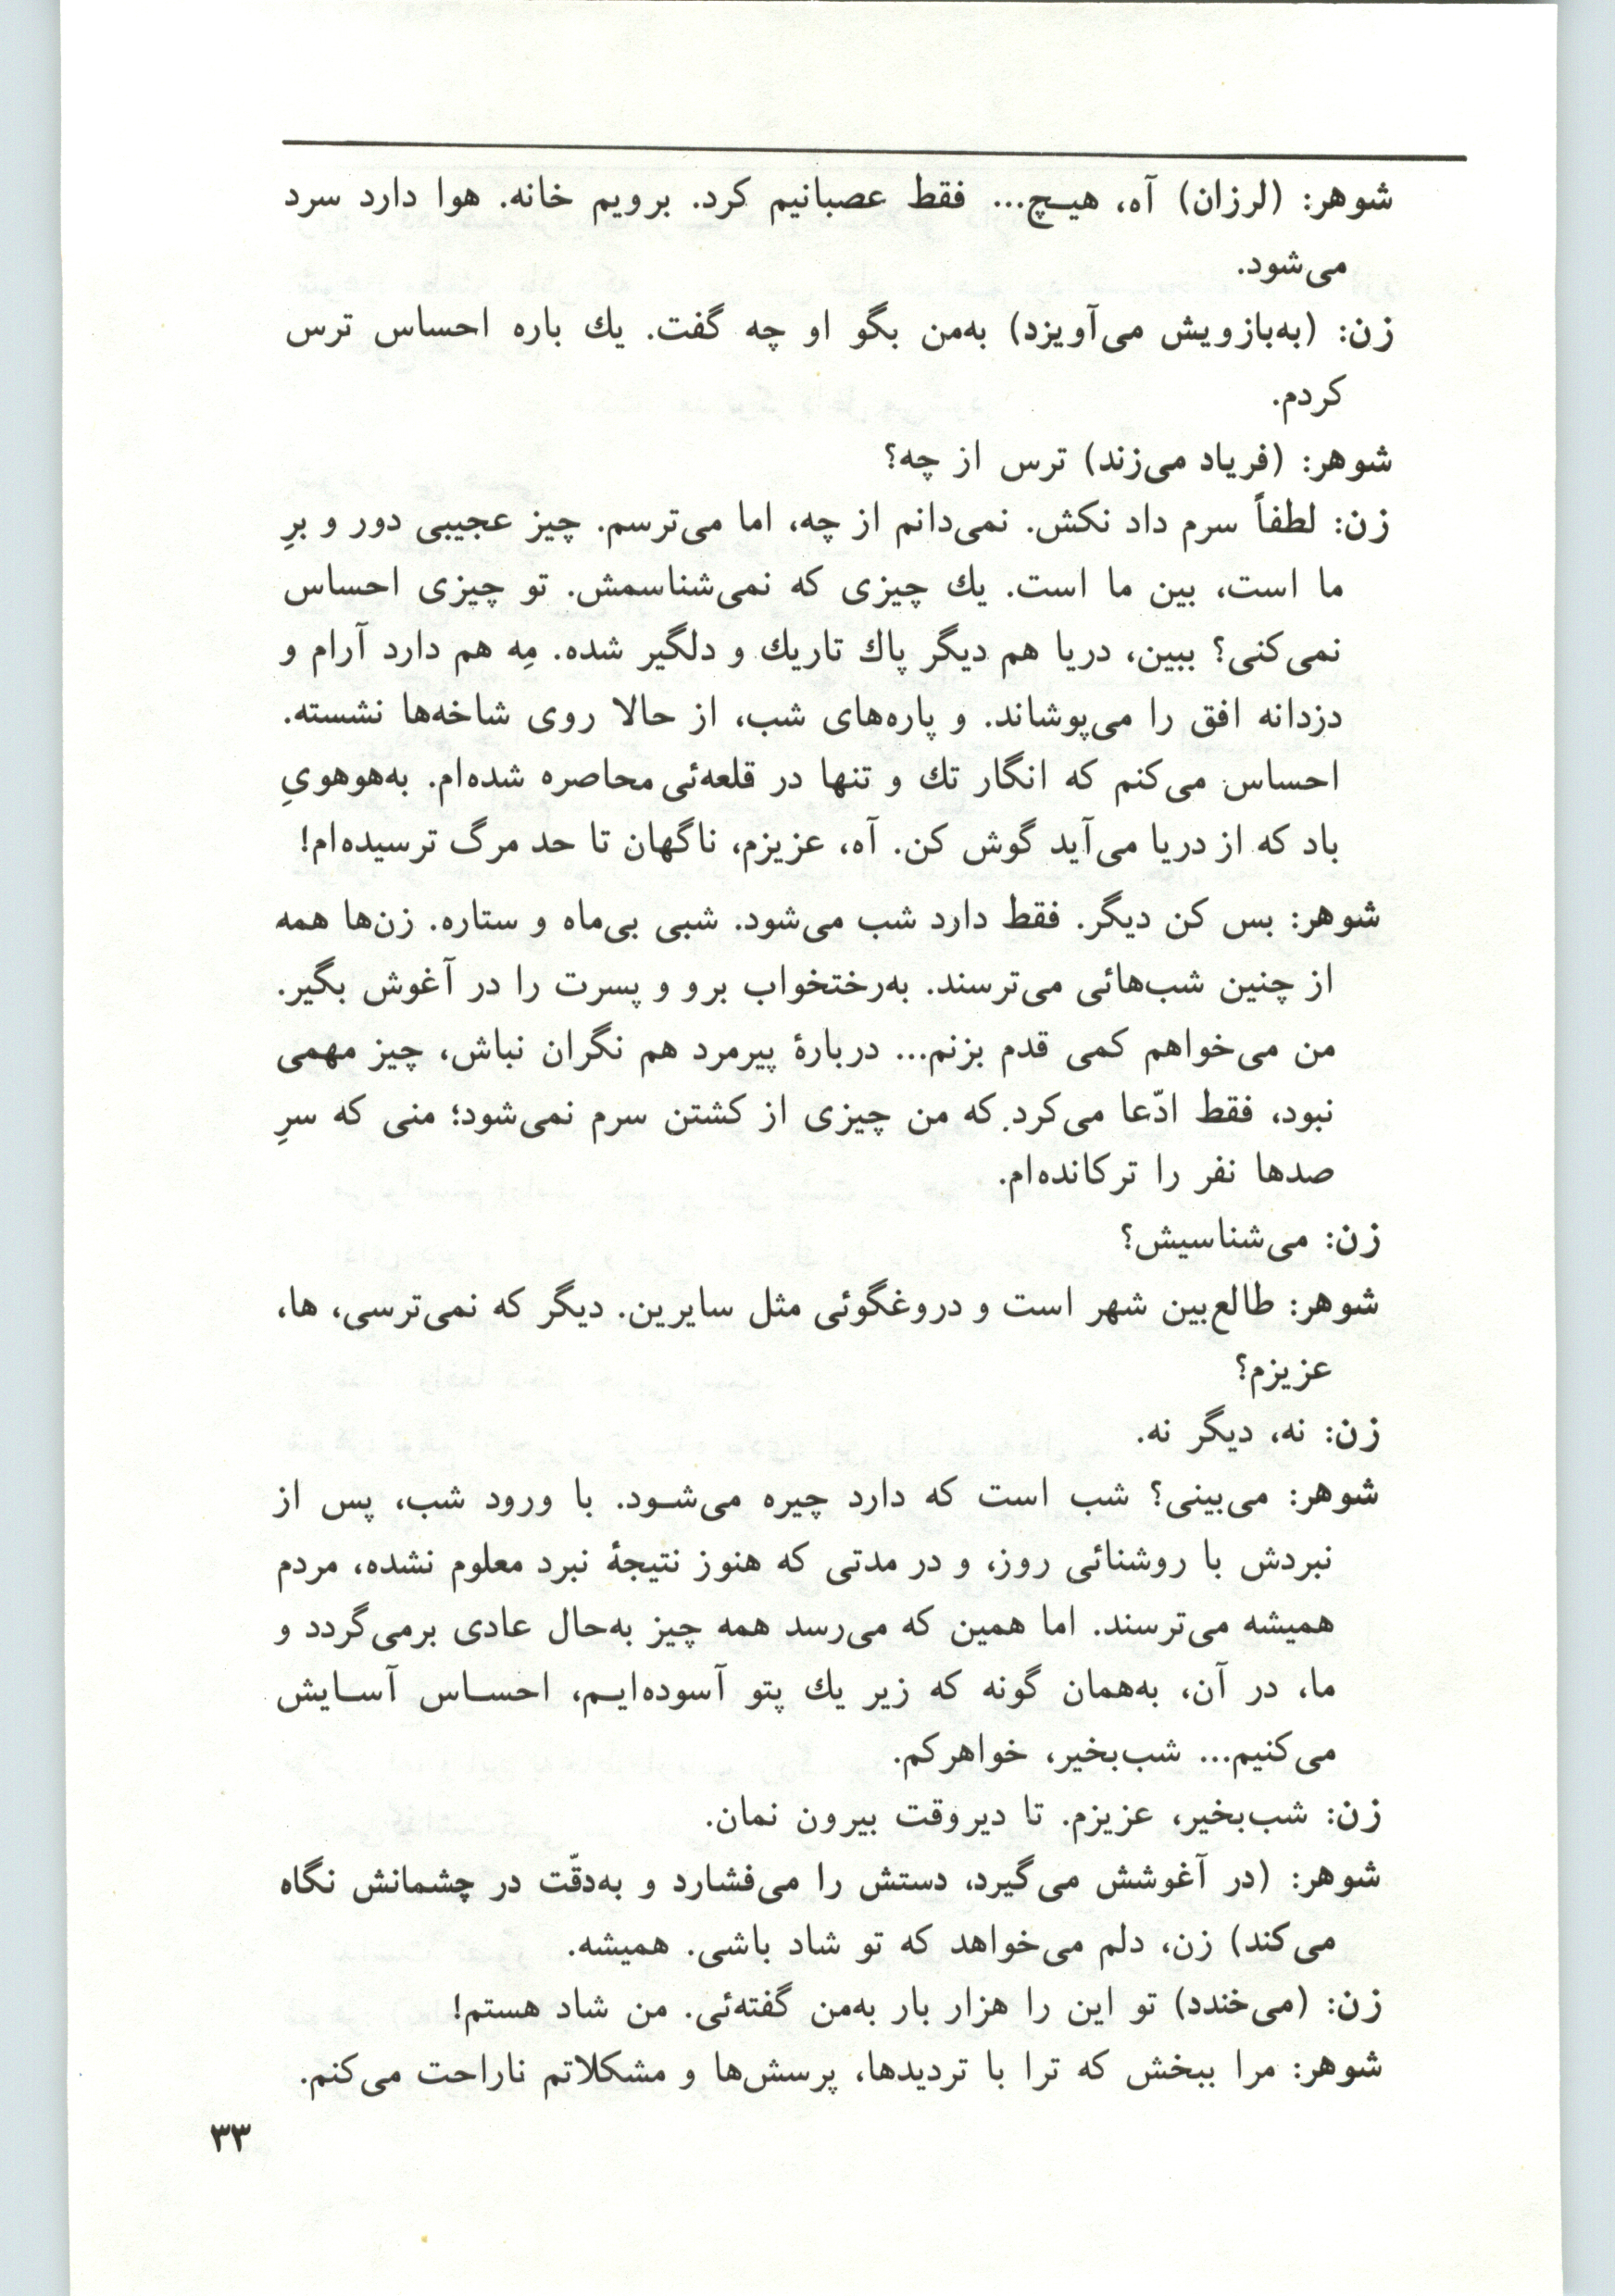 شوهر: (لرزان) آه، هیـچ... فقط عصبانیم کرد. برویم خانه. هوا دارد سرد
می‌شود.
زن: (به‌بازویش می‌آویزد) به‌من بگو او چه گفت. یك باره احساس ترس
کردم.
شوهر: (فریاد می‌زند) ترس از چه؟
زن: لطفاً سرم داد نکش. نمی‌دانم از چه، اما می‌ترسم. چیز عجیبی دور و برِ
ما است، بین ما است. یك چیزی که نمی‌شناسمش. تو چیزی احساس
نمی‌کنی؟ ببین، دریا هم دیگر پاك تاریك و دلگیر شده. مِه هم دارد آرام و
دزدانه افق را می‌پوشاند. و پاره‌های شب، از حالا روی شاخه‌ها نشسته.
احساس می‌کنم که انگار تك و تنها در قلعه‌ئی محاصره شده‌ام. به‌هوهویِ
باد که از دریا می‌آید گوش کن. آه، عزیزم، ناگهان تا حد مرگ ترسیده‌ام!
شوهر: بس کن دیگر. فقط دارد شب می‌شود. شبی بی‌ماه و ستاره. زن‌ها همه
از چنین شب‌هائی می‌ترسند. به‌رختخواب برو و پسرت را در آغوش بگیر.
من می‌خواهم کمی قدم بزنم... دربارهٔ پیرمرد هم نگران نباش، چیز مهمی
نبود، فقط ادّعا می‌کرد که من چیزی از کشتن سرم نمی‌شود؛ منی که سرِ
صدها نفر را ترکانده‌ام.
زن: می‌شناسیش؟
شوهر: طالع‌بین شهر است و دروغگوئی مثل سایرین. دیگر که نمی‌ترسی، ها،
عزیزم؟
زن: نه، دیگر نه.
شوهر: می‌بینی؟ شب است که دارد چیره می‌شـود. با ورود شب، پس از
نبردش با روشنائی روز، و در مدتی که هنوز نتیجهٔ نبرد معلوم نشده، مردم
همیشه می‌ترسند. اما همین که می‌رسد همه چیز به‌حال عادی برمی‌گردد و
ما، در آن، به‌همان گونه که زیر یك پتو آسوده‌ایـم، احسـاس آسـایش
می‌کنیم... شب‌بخیر، خواهرکم.
زن: شب‌بخیر، عزیزم. تا دیروقت بیرون نمان.
شوهر: (در آغوشش می‌گیرد، دستش را می‌فشارد و به‌دقّت در چشمانش نگاه
می‌کند) زن، دلم می‌خواهد که تو شاد باشی. همیشه.
زن: (می‌خندد) تو این را هزار بار به‌من گفته‌ئی. من شاد هستم!
شوهر: مرا ببخش که ترا با تردیدها، پرسش‌ها و مشکلاتم ناراحت می‌کنم.
۳۳